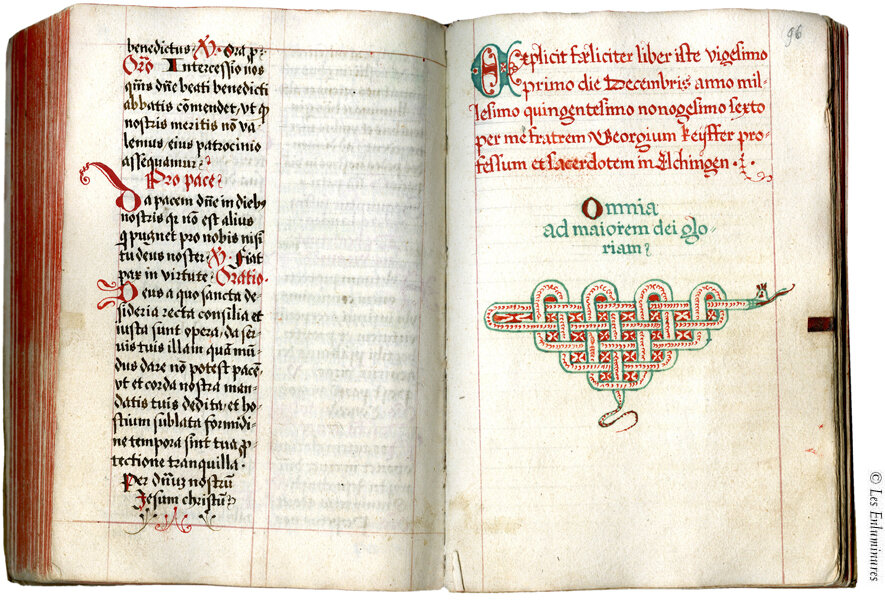 benedictus· V̷· Ora p̱·
Or̃o Intercessio nos
qm̃s dñe beati benedicti
abbatis cõmendet, ut q̃
nostris meritis nõ va-
lemus, eius patrocinio
assequamur·
Pro pace·
Da pacem dñe in dieb9
nostris q̃ nõ est alius
q̃ pugnet pro nobis nisi
tu deus noster· V̷ Fiat
pax in virtute· Oratio·
Deus a quo sancta de-
sideria recta consilia et
iusta sunt opera, da ser-
vis tuis illam quã mũ-
dus dare nõ potest pacẽ
vt et corda nostra man-
datis tuis dedita, et ho-
stium sublata formidi-
ne tempora sint tua p̱-
tectione tranquilla·
Per dñm nostrũ
Jesum christũ·
96
Explicit fæliciter liber iste vigesimo
primo die Decembris anno mil-
lesimo quingentesimo nonogesimo sexto
per me fratrem Georgium Keysser pro-
fessum et sacerdotem in Elchingen·
Omnia
ad maiorem dei glo-
riam·
© Les Enluminures